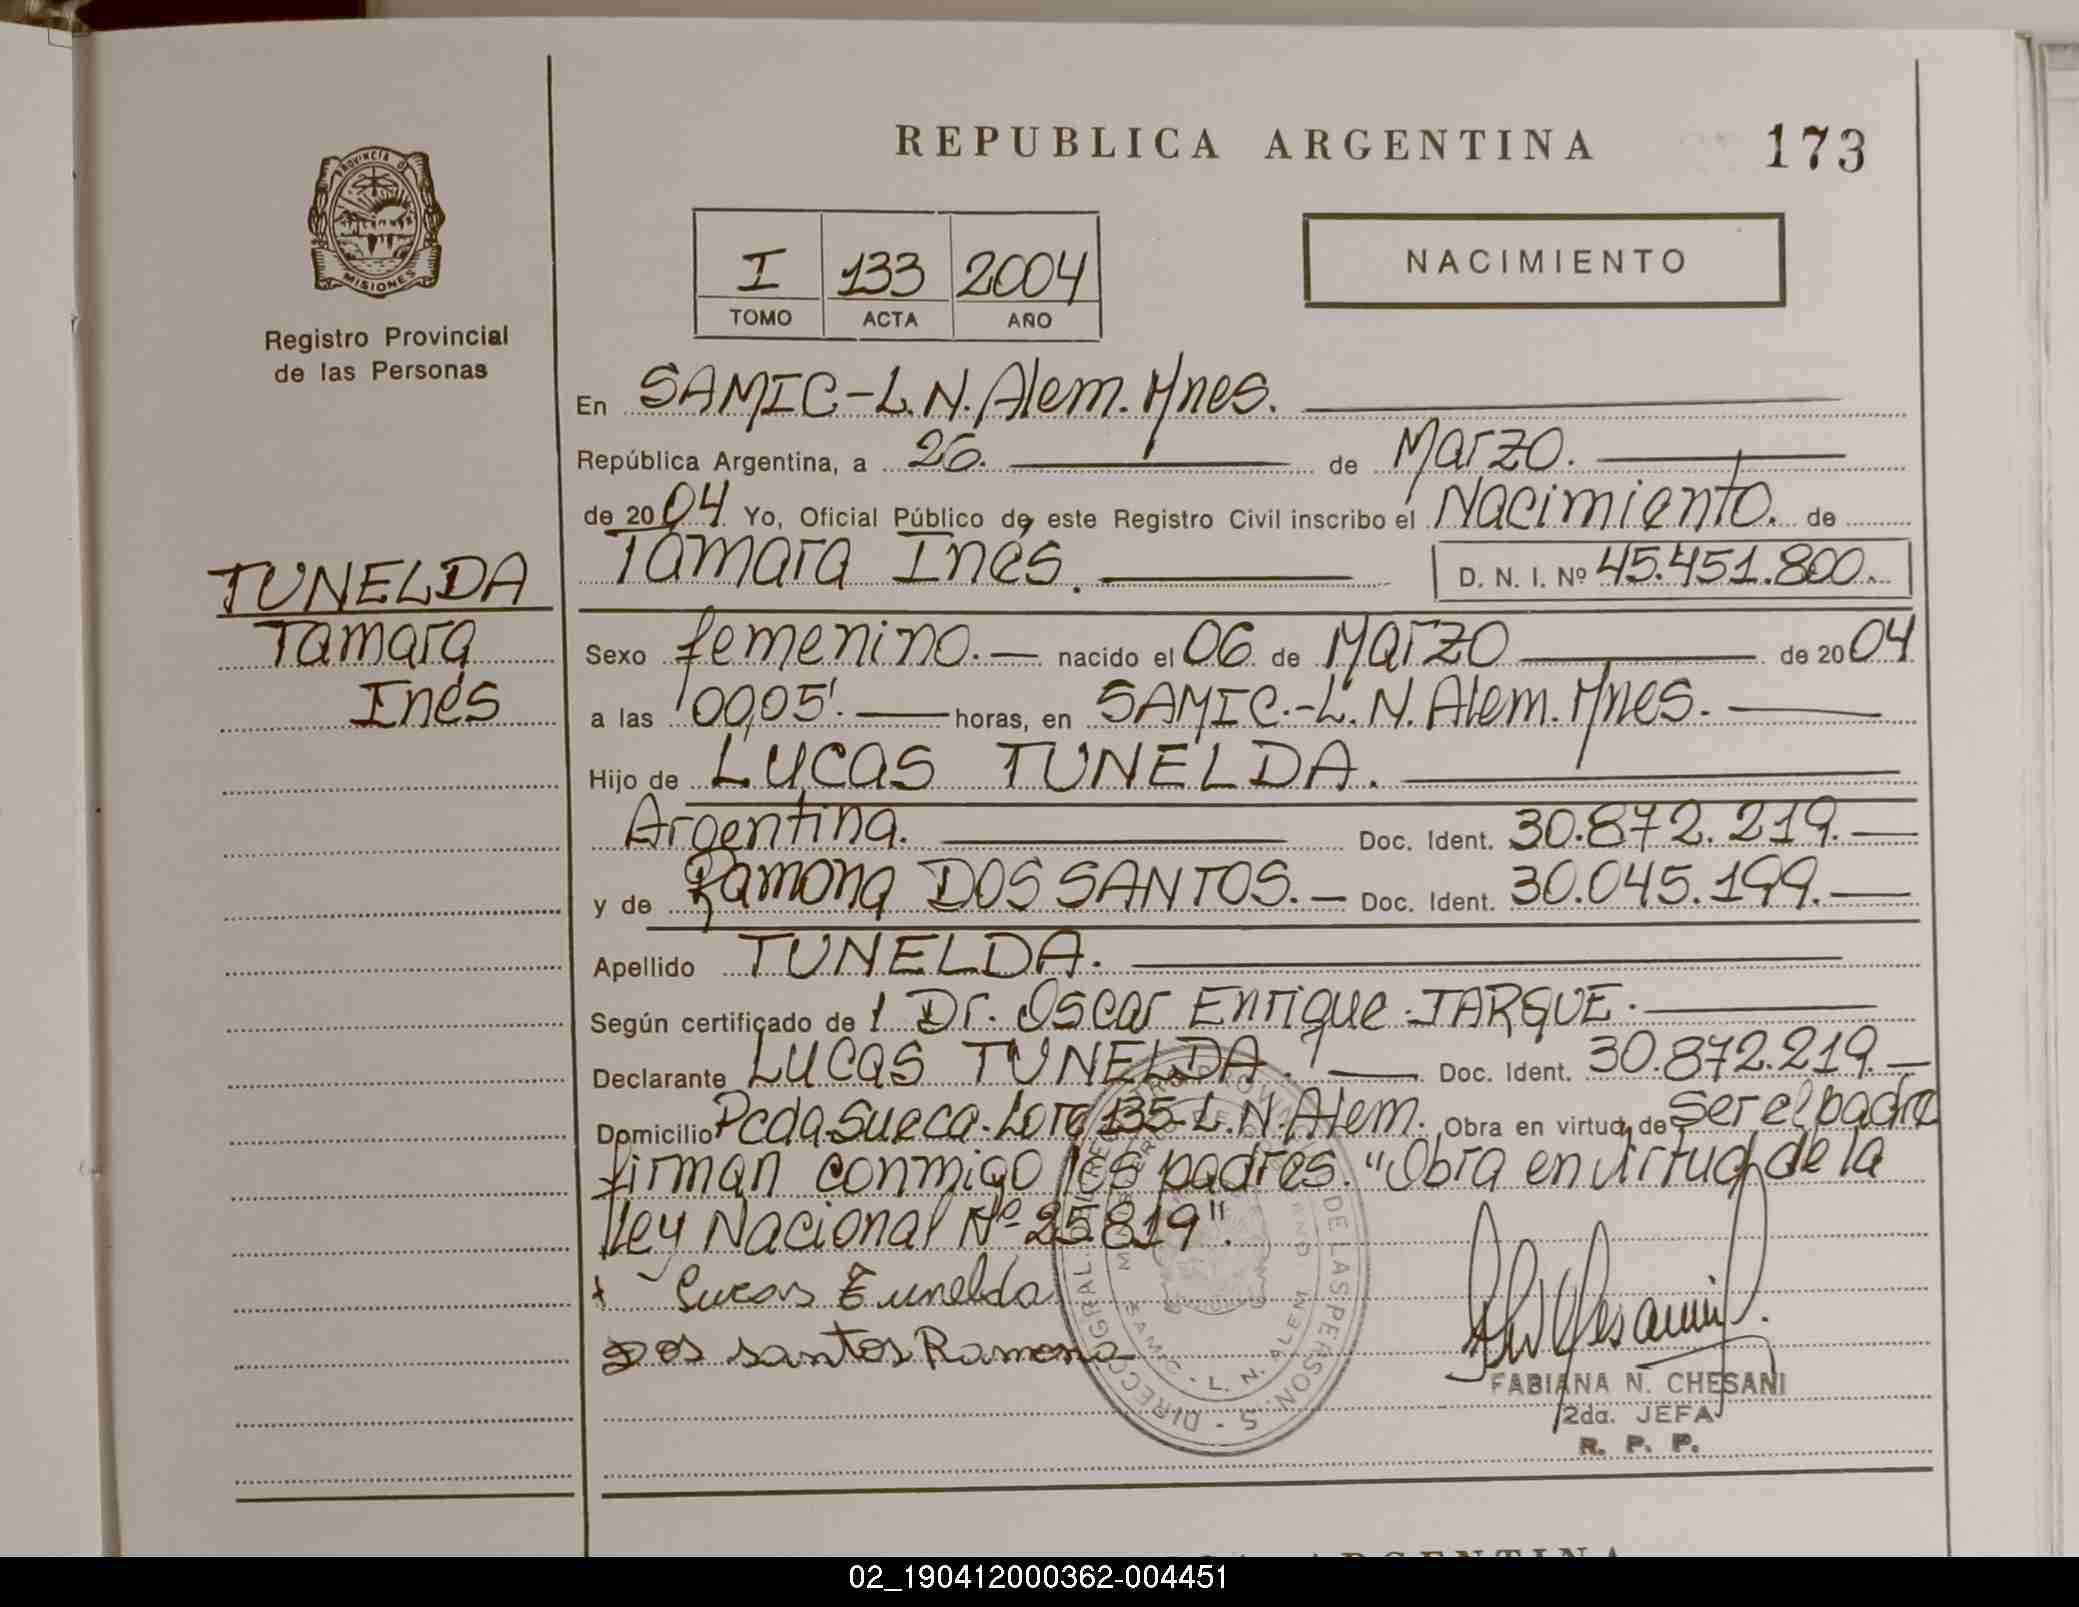 REPUBLICA ARGENTINA
173
PROVINCIA DE
MISIONES
Registro Provincial
de las Personas
I 133 2004
TOMO ACTA AÑO
NACIMIENTO
En SAMIC-L.N.Alem.Mnes.
República Argentina, a 26. de Marzo.
de 2004 Yo, Oficial Público de este Registro Civil inscribo el Nacimiento. de
Tamara Inés. D. N. I. Nº 45.451.800.
TUNELDA
Tamara
Inés
Sexo femenino.- nacido el 06 de Marzo de 2004
a las 00,05'. horas, en SAMIC.-L.N.Alem.Mnes.
Hijo de LUCAS TUNELDA.
Argentina. Doc. Ident. 30.872.219.
y de Ramona DOS SANTOS.- Doc. Ident. 30.045.199.
Apellido TUNELDA.
Según certificado de Dr. Oscar Enrique JARQUE.
Declarante LUCAS TUNELDA. Doc. Ident. 30.872.219.
Domicilio Pcda.Sueca.Lote 135-L.N.Alem. Obra en virtud de Ser el padre
firman conmigo los padres. "Obra en virtud de la
ley Nacional Nº 25819".
Lucas Tunelda
Dos santos Ramona
S. A.M.I.C. - L. N. ALEM
DE LAS PERSONAS
FABIANA N. CHESANI
2da. JEFA
R. P. P.
02_190412000362-004451